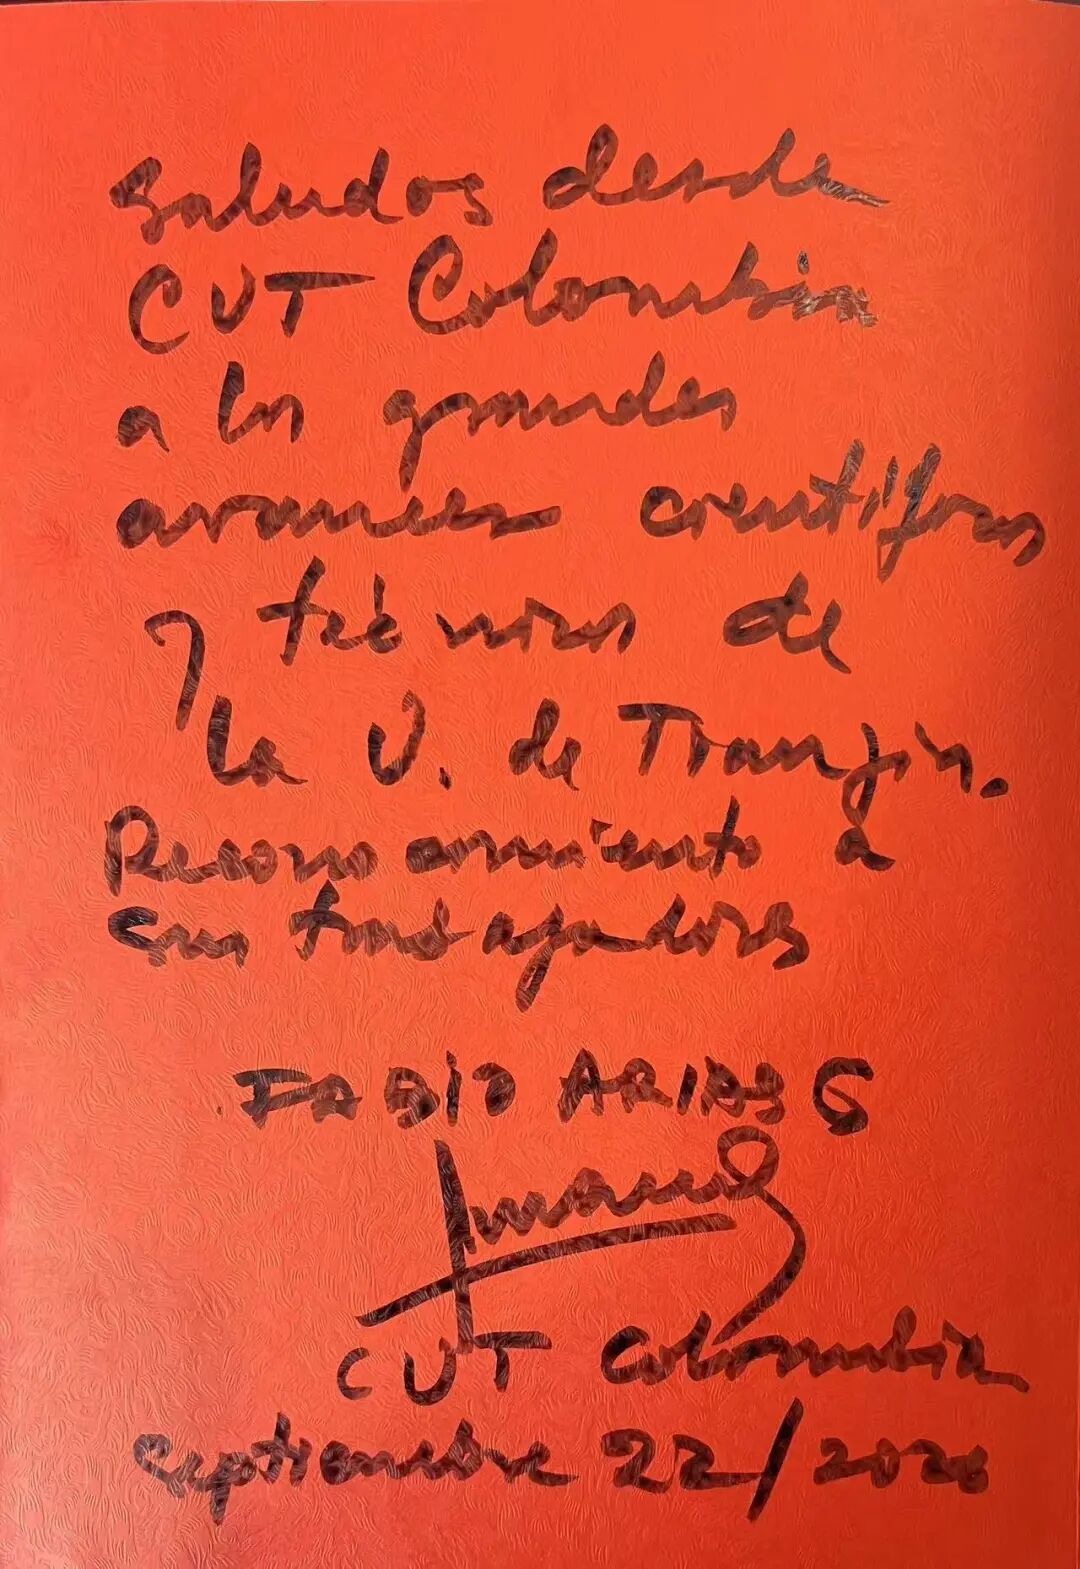 Saludos desde
CUT Colombia
a los grandes
avances cientificos
y técnicos de
la U. de Tianjin.
Reconocimiento a
sus trabajadores
FABIO ARIAS G
CUT Colombia
Septiembre 22/